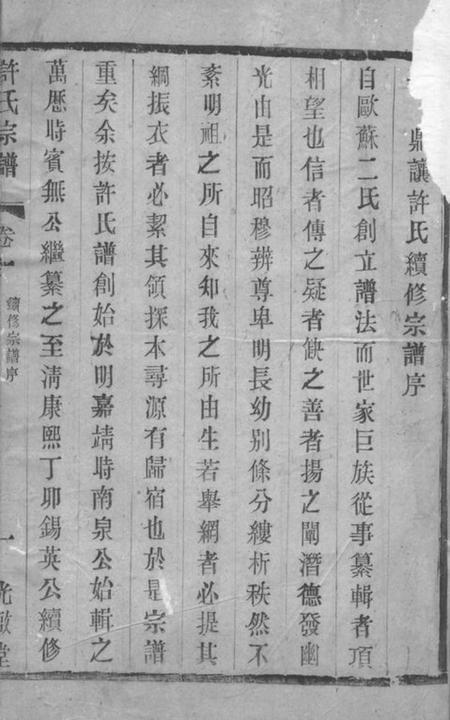 鼎讓許氏續修宗譜序
自歐蘇二氏創立譜法而世家巨族從事纂輯者項
相望也信者傳之疑者缺之善者揚之闡潛德發幽
光由是而昭穆辨尊卑明長幼別條分縷析秩然不
紊明祖之所自來知我之所由生若舉網者必提其
綱振衣者必挈其領探本尋源有歸宿也於是宗譜
重矣余按許氏譜創始於明嘉靖時南泉公始輯之
萬歷時賓無公繼纂之至淸康熙丁卯錫英公續修
許氏宗譜
卷一
續修宗譜序
一
光啟堂